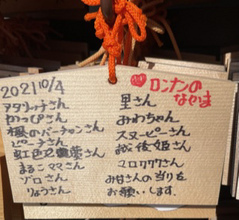 2021 10/4
アタリーナさん
かっぴさん
桜のバーチャンさん
ピーチさん
虹色2農薬さん
まるこママさん
ゾロさん
りょうさん
ロンナンの
なかま
里さん
みわちゃん
スヌーピーさん
越後姫さん
マロククタさん
みなさんの当りを
お願いします。